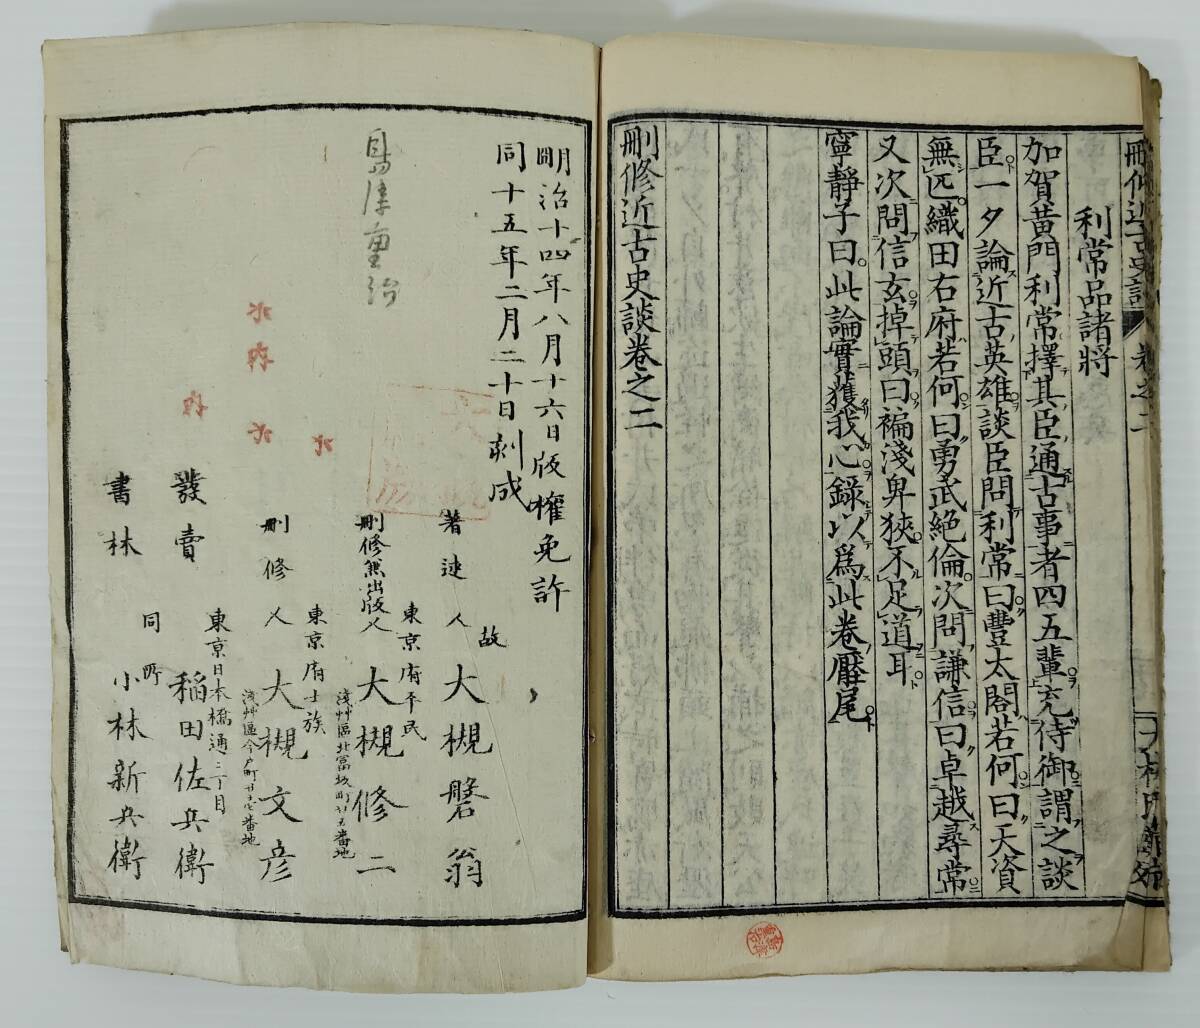 利常品諸將
加賀黃門利常擇其臣通古事者四五輩充侍御謂之談
臣一夕論近古英雄談臣問利常曰豐太閤若何曰天資
無匹織田右府若何曰勇武絶倫次問謙信曰卓越尋常
又次問信玄掉頭曰褊淺卑狹不足道耳
寧靜子曰此論實獲我心錄以爲此卷壓尾
刪修近古史談卷之二
明治十四年八月十六日版權免許
同十五年二月二十日刻成
著述人 故 大槻磐翁
東京府平民
刪修兼出版人 大槻修二
淺艸區北富坂町廿五番地
東京府士族
刪修人 大槻文彦
淺艸區今戸町廿七番地
東京日本橋通二丁目
發賣 稻田佐兵衞
同所
書林 小林新兵衞
島津重治